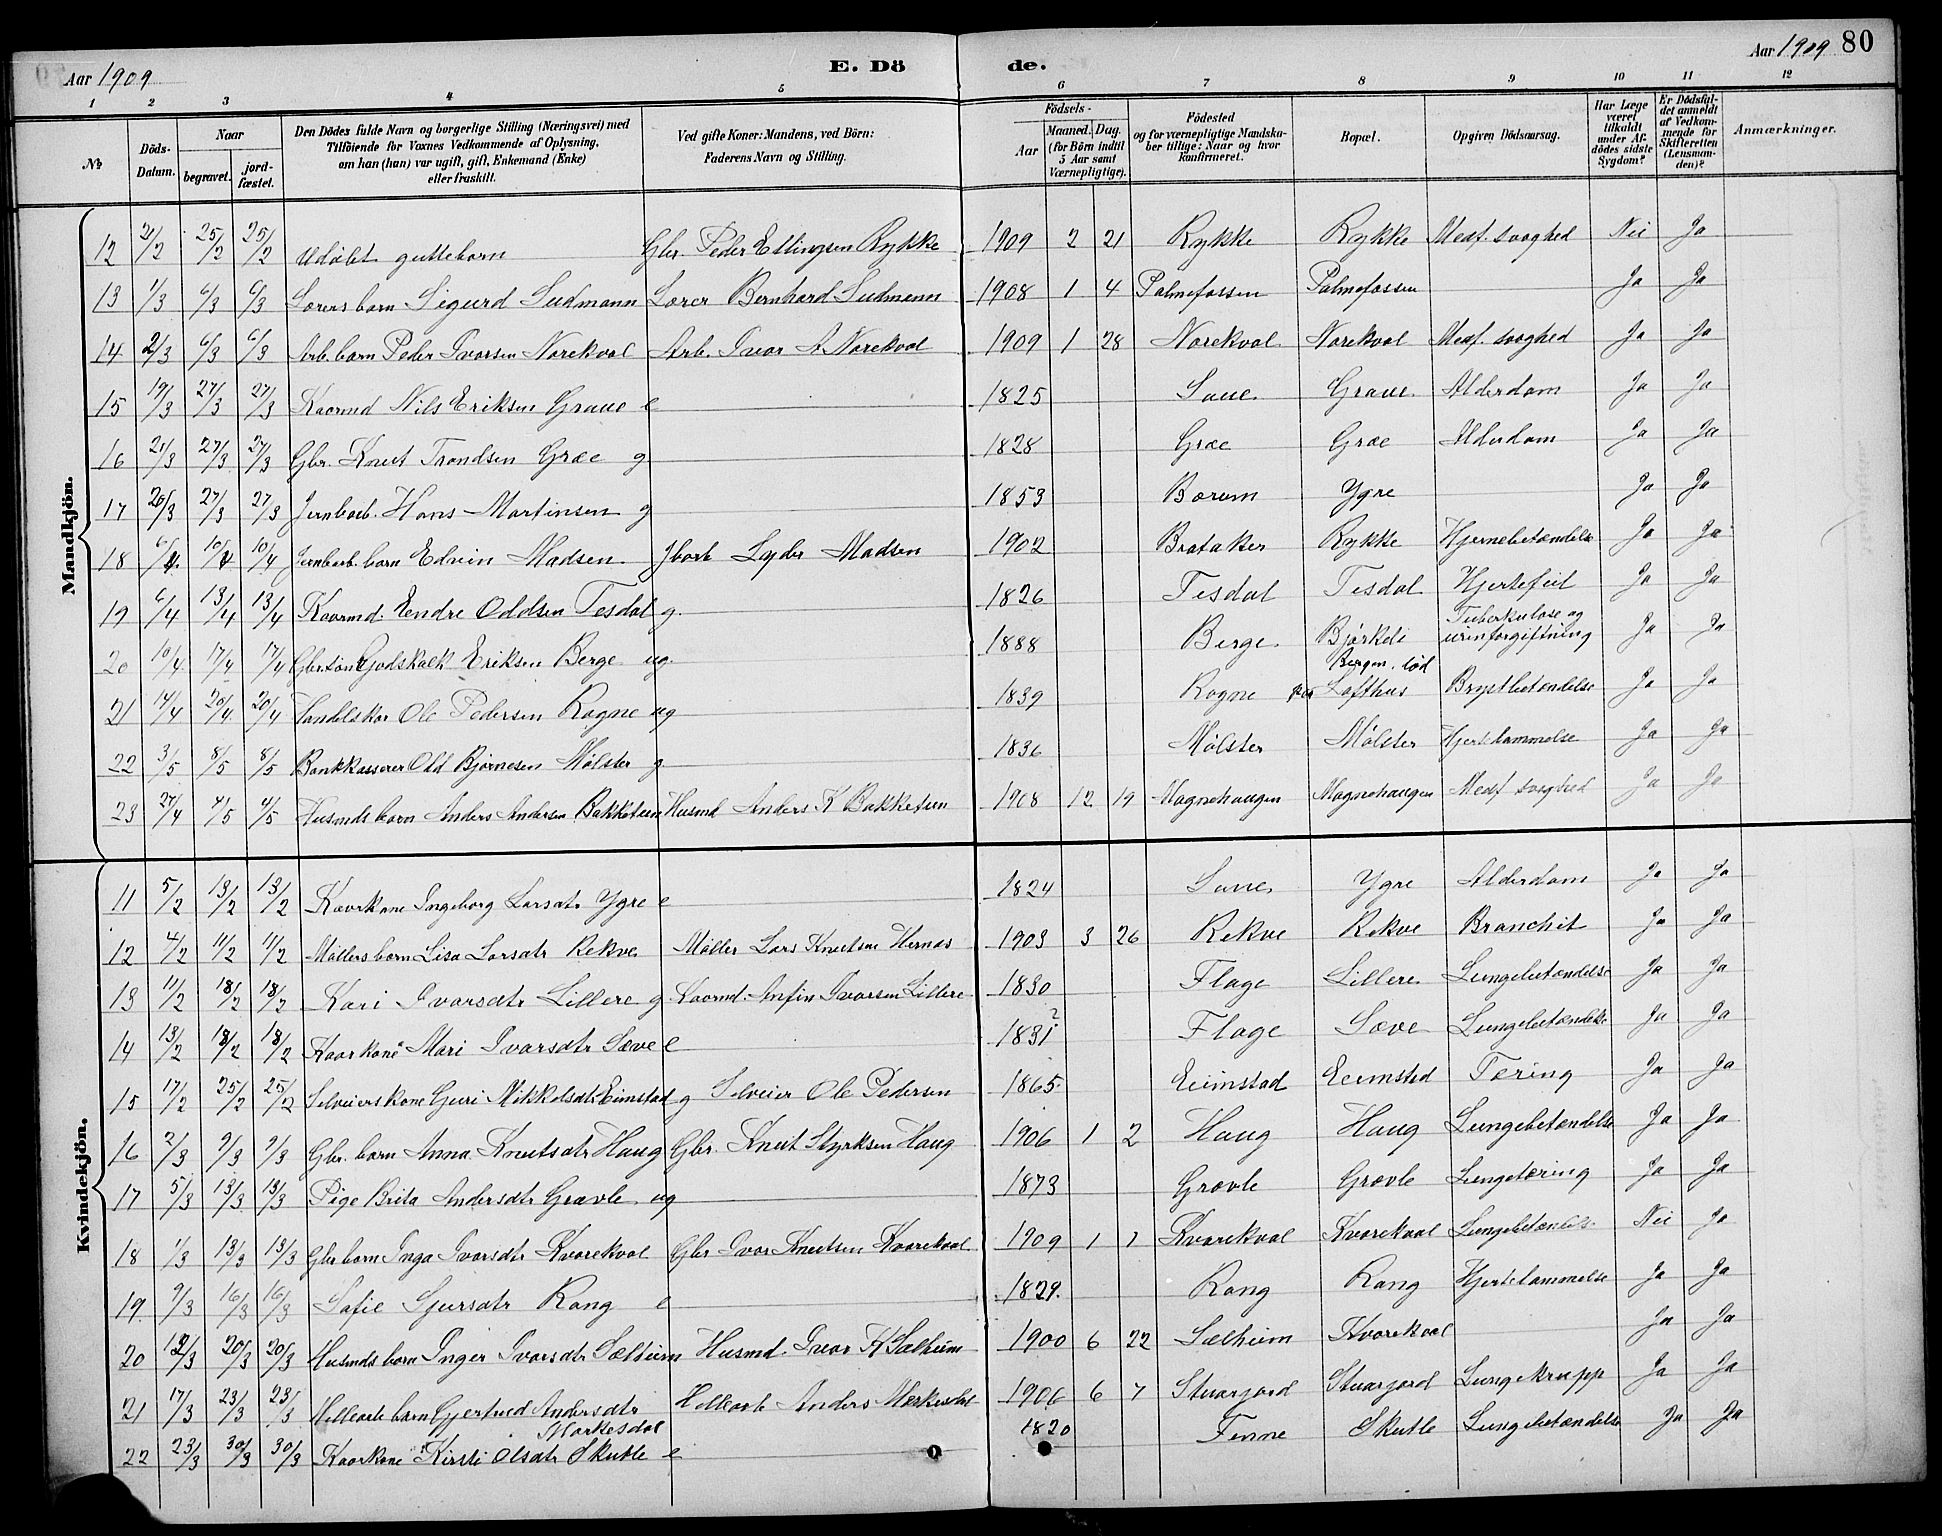 Aar 1909
E. Dö
de.
Aar 1909 80
1 2 3 4 5 6 7 8 9 10 11 12
No
Döds-Datum.
Naar
begravet.
jord-fæstet.
Den Dödes fulde Navn og borgerlige Stilling (Næringsvei) med
Tilföiende for Voxnes Vedkommende af Oplysning,
om han (hun) var ugift, gift, Enkemand (Enke)
eller fraskilt.
Ved gifte Koner: Mandens, ved Börn:
Faderens Navn og Stilling.
Födsels-
Aar
Maaned. Dag.
(for Börn indtil
5 Aar samt
Værnepligtige).
Födested
og for værnepligtige Mandska-
ber tillige: Naar og hvor
konfirmeret.
Bopæl.
Opgiven Dödsaarsag.
Har Læge
været
tilkaldt
under Af-
dödes sidste
Sygdom?
Er Dödsfal-
det anmeldt
af Vedkom-
mende for
Skifteretten
(Lensman-
den)?
Anmærkninger.
Mandkjön.
12 21/2 25/2 25/2 Udøbt guttebarn Gbr. Peder Ellingsen Rykke 1909 2 21 Rykke Rykke Medf. svaghed Nei Ja
13 1/3 6/3 6/3 Lærers barn Sigurd Sudmann Lærer Bernhard Sudmann 1908 1 4 Palmefossen Palmefossen Ja Ja
14 2/3 6/3 6/3 Arb. barn Peder Ivarsen Norekval Arb. Ivar A. Norekval 1909 1 28 Norekval Norekval Medf. svaghed Ja Ja
15 19/3 27/3 27/3 Kaarmd Nils Eriksen Graue e 1825 Saue Graue Alderdom Ja Ja
16 21/3 27/3 27/3 Gbr. Knut Trondsen Græe g 1828 Græe Græe Alderdom Ja Ja
17 20/3 27/3 27/3 Jernbarb. Hans Martinsen g 1853 Bærum Ygre Ja Ja
18 6/4 10/4 10/4 Jernbarb. barn Edvin Madsen Jbarb Lyder Madsen 1902 Brataker Rykke Hjernebetændelse Ja Ja
19 6/4 13/4 13/4 Kaarmd. Eendre Oddsen Tesdal g. 1826 Tesdal Tesdal Hjertefeil Ja Ja
20 10/4 17/4 17/4 Gbr søn Godskalk Eriksen Berge ug. 1888 Berge Bjørkeli Tuberkulose og urinforgiftning Ja Ja
21 14/4 20/4 20/4 Handelskar Ole Pedersen Rogne ug 1839 Rogne Bergen. død Lofthus Brystbetændelse Ja Ja
22 3/5 8/5 8/5 Bankkasserer Odd Bjørnesen Mølster g 1836 Mølster Mølster Hjertelammelse Ja Ja
23 27/4 4/5 4/5 Husmds barn Anders Andersen Bakketun Husmd Anders K Bakketun 1908 12 19 Magnehaugen Magnehaugen Medf svaghed Ja Ja
Kvindekjön.
11 5/2 13/2 13/2 Kaarkone Ingeborg Larsdtr Ygre e 1824 Saue Ygre Alderdom Ja Ja
12 4/2 11/2 11/2 Møllers barn Lisa Larsdtr Rekve Møller Lars Knutsen Hernæs 1903 3 26 Rekve Rekve Bronchit Ja Ja
13 11/2 18/2 18/2 Kari Ivarsdtr Lillere g Kaarmd. Anfin Ivarsen Lillere 1830 Flage Lillere Lungebetændelse Ja Ja
14 13/2 18/2 18/2 Kaarkone Mari Ivarsdtr Sæve e 1831 2 Flage Sæve Lungebetændelse Ja Ja
15 17/2 25/2 25/2 Selveierskone Guri Mikkelsdtr Eimstad g Selveier Ole Pedersen 1865 Eimstad Eimstad Tæring Ja Ja
16 2/3 9/3 9/3 Gbr. barn Anna Knutsdtr Haug Gbr. Knut Styrksen Haug 1906 1 2 Haug Haug Lungebetændelse Ja Ja
17 5/3 13/3 13/3 Pige Brita Andersdtr Grovle ug 1873 Grovle Grovle Lungetæring Ja Ja
18 1/3 13/3 13/3 Gbr barn Inga Ivarsdtr Kvarekval Gbr Ivar Knutsen Kvarekval 1909 1 1 Kvarekval Kvarekval Lungebetændelse Nei Ja
19 9/3 16/3 16/3 Sofie Sjursdtr Rong e 1829. Rong Rong Hjertelammelse Ja Ja
20 12/3 20/3 20/3 Husmds barn Inger Ivarsdtr Sælheim Husmd. Ivar K Sælheim 1900 6 22 Sælheim Kvarekval Ja Ja
21 17/3 23/3 23/3 Helleatb barn Gjertrud Andersdtr Mørkesdal Helleatb Anders Mørkesdal 1906 6 7 Stuarjord Stuarjord Lungekrupp Ja Ja
22 23/3 30/3 30/3 Kaarkone Kirsti Olsdtr Skutle e 1820 Finne Skutle Lungebetændelse Ja Ja